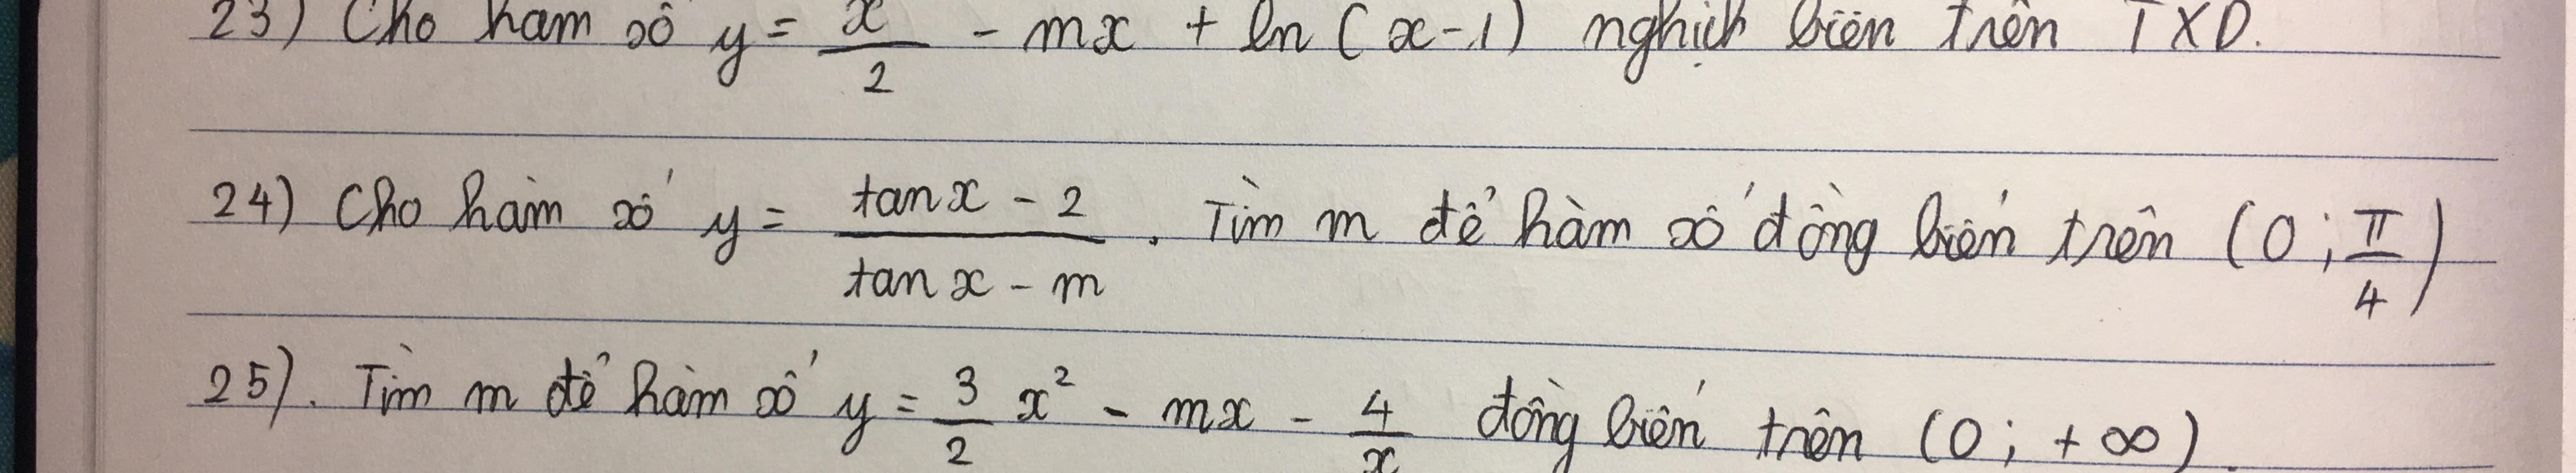 23) Cho hàm số y = x/2 - mx + ln (x-1) nghịch biến trên TXD.
24) Cho hàm số y = (tan x - 2)/(tan x - m) . Tìm m để hàm số đồng biến trên (0 ; π/4)
25). Tìm m để hàm số y = 3/2 x² - mx - 4/x đồng biến trên (0 ; + ∞).